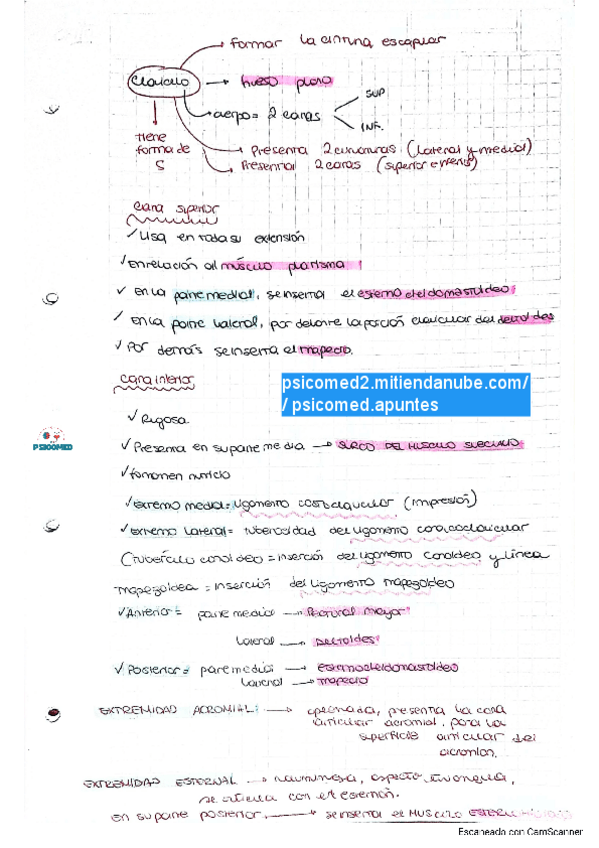 formar la cintura escapular
clavicula → hueso plano
cuerpo = 2 caras
SUP
INF.
tiene
forma de
S
Presenta 2 curvaturas (lateral y medial)
Presenta 2 caras (superior e inferior)
cara superior
✓ Lisa en toda su extensión
✓ En relación al músculo platisma
✓ en la parte medial, se inserta el esternocleidomastoideo
✓ en la parte lateral, por delante la porción clavicular del deltoides
✓ Por detrás se inserta el trapecio.
cara inferior
psicomed2.mitiendanube.com/
/ psicomed.apuntes
✓ Rugosa
PSICOMED
✓ Presenta en su parte media → SURCO DEL MUSCULO SUBCLAVIO
✓ foramen nutricio
✓ extremo medial = ligamento costoclavicular (impresión)
✓ extremo lateral = tuberosidad del ligamento coracoclavicular
(tubérculo conoideo = inserción del ligamento conoideo y línea
trapezoidea = inserción del ligamento trapezoideo
✓ Anterior = parte medial → Pectoral mayor
lateral → Deltoides
✓ Posterior = parte medial → esternocleidomastoideo
lateral → trapecio
EXTREMIDAD ACROMIAL: → aplanada, presenta la cara
articular acromial, para la
superficie articular del
acromion.
EXTREMIDAD ESTERNAL → voluminosa, aspecto
se articula con el esternón.
en su parte posterior, → se inserta el MUSCULO
Escaneado con CamScanner